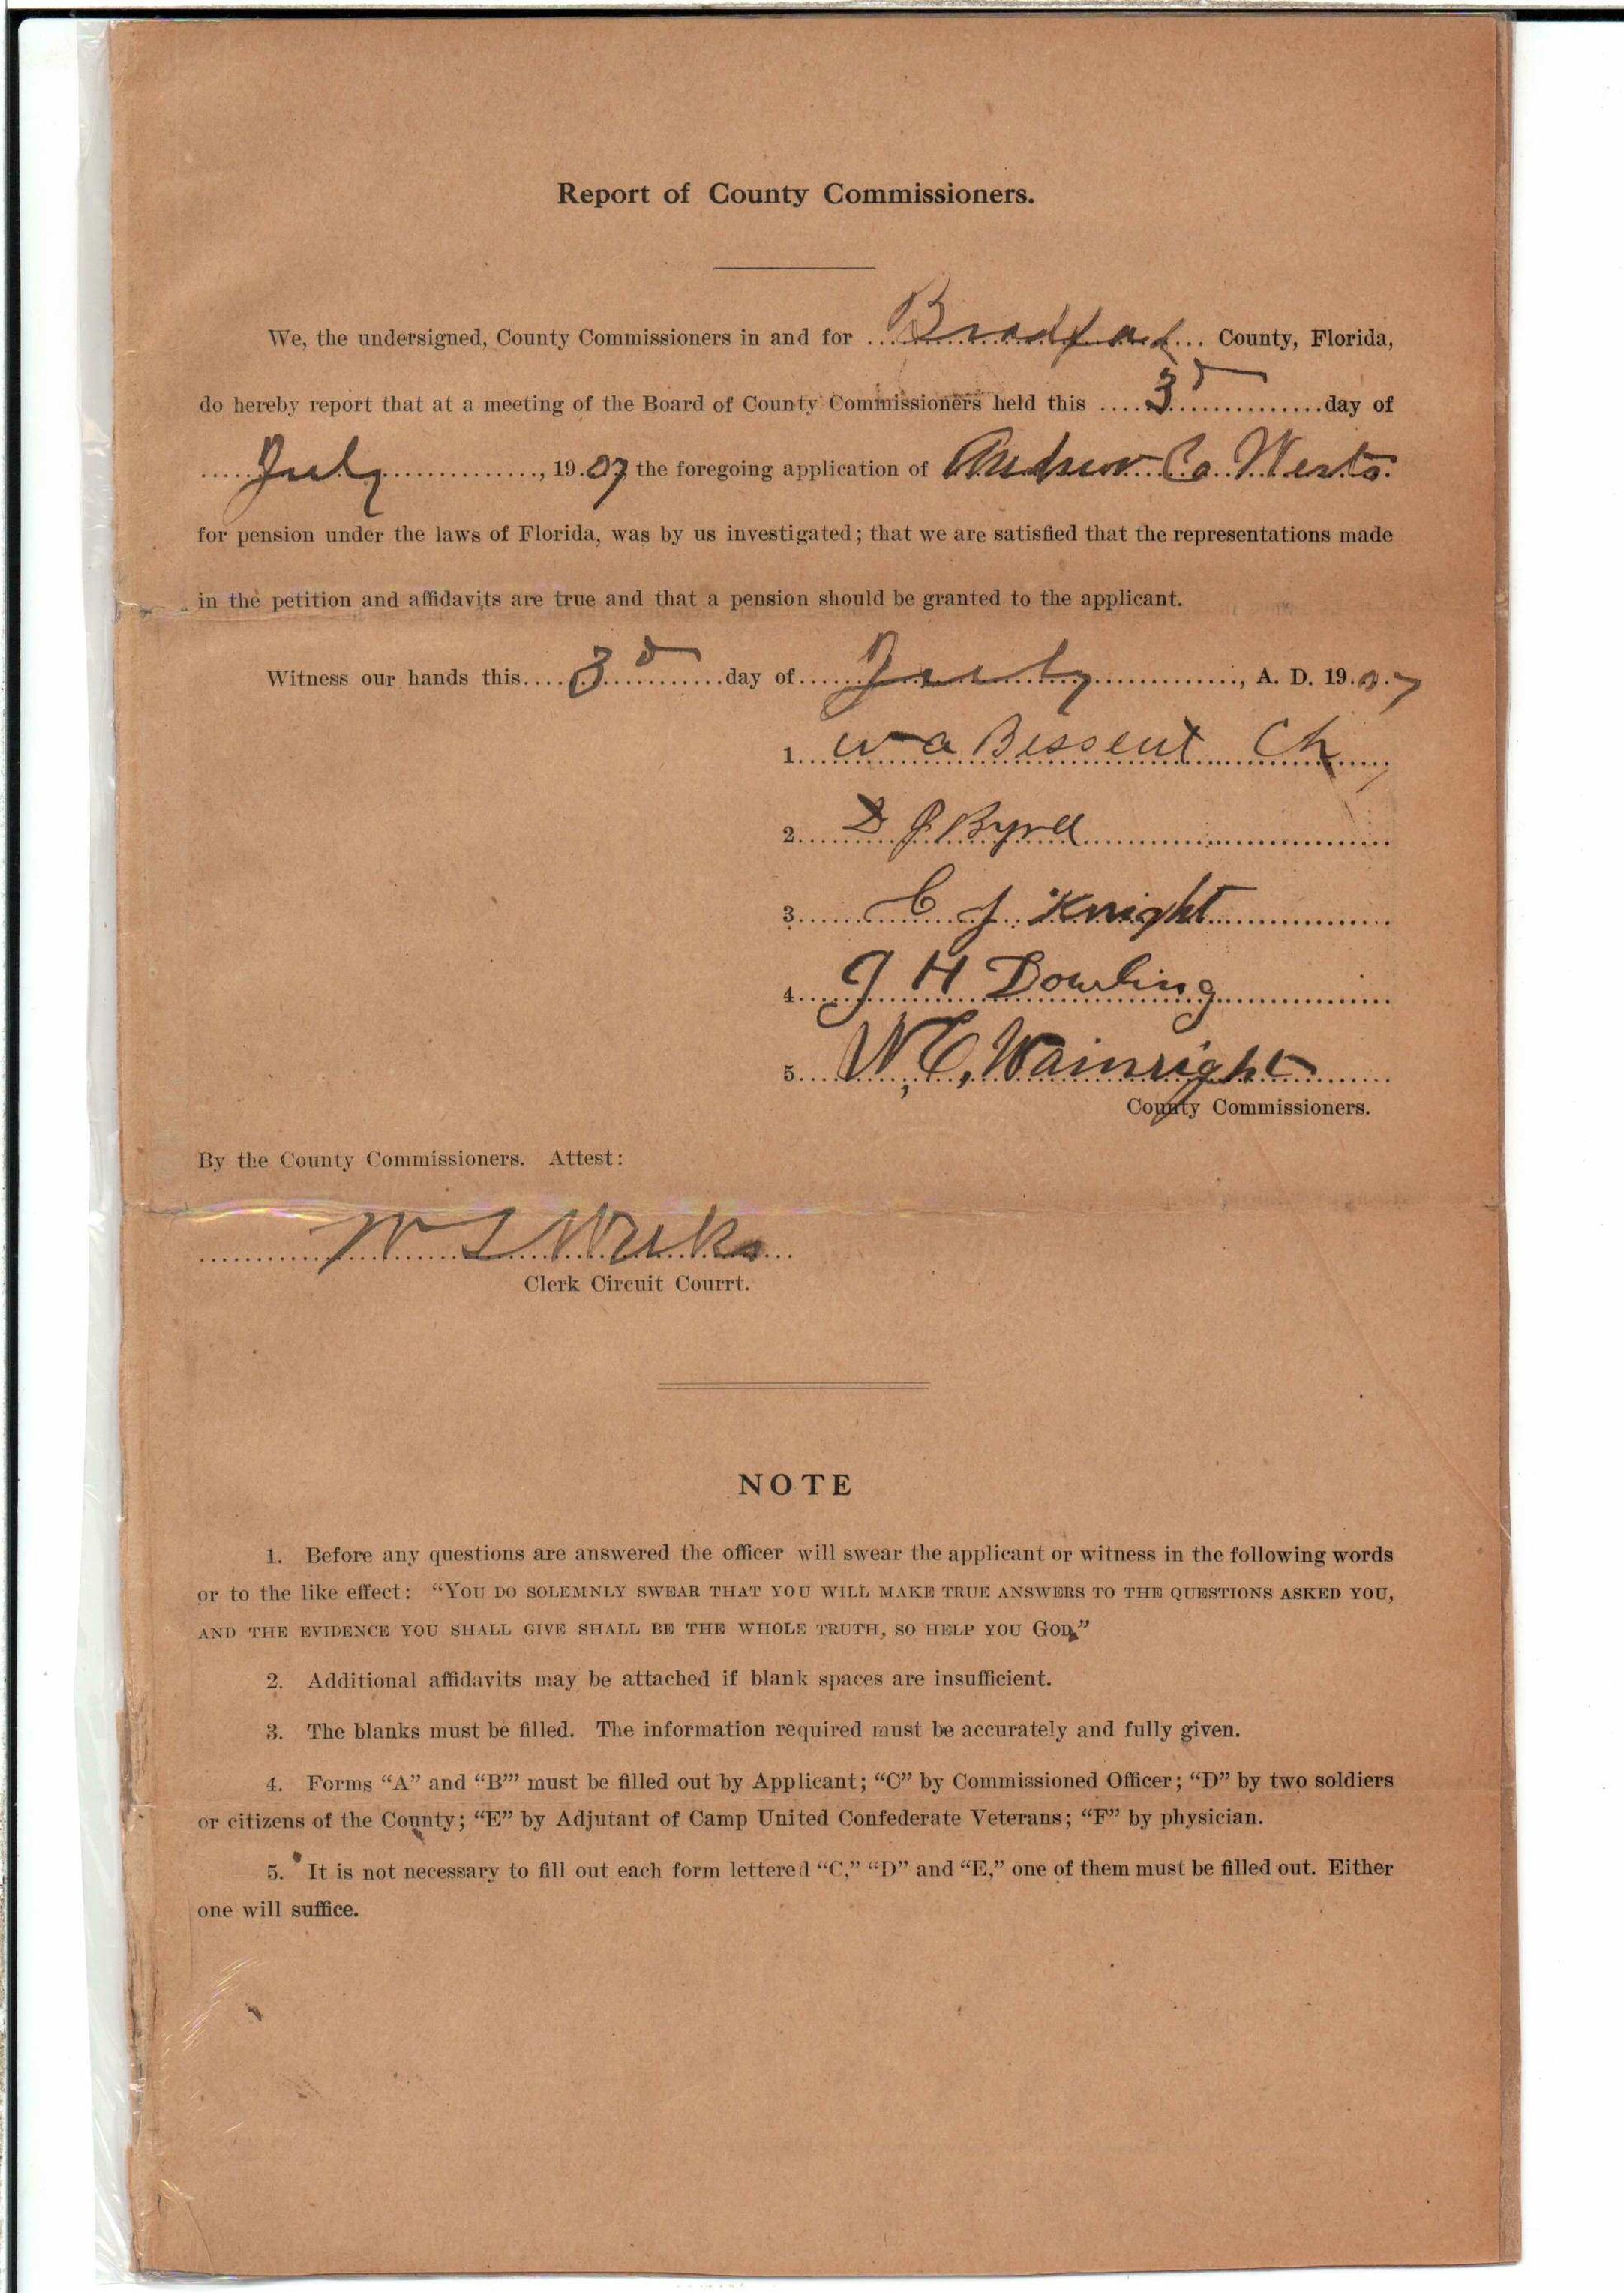 Report of County Commissioners.
We, the undersigned, County Commissioners in and for Bradford County, Florida,
do hereby report that at a meeting of the Board of County Commissioners held this 3d day of
July, 1907 the foregoing application of Andrew C. Werts.
for pension under the laws of Florida, was by us investigated; that we are satisfied that the representations made
in the petition and affidavits are true and that a pension should be granted to the applicant.
Witness our hands this 3d day of July, A. D. 1907
1. W A Bessent Ch
2. D J Byrd
3. C J Knight
4. J H Dowling
5. W. E. Wainright
County Commissioners.
By the County Commissioners. Attest:
W L Weeks
Clerk Circuit Courrt.
NOTE
1. Before any questions are answered the officer will swear the applicant or witness in the following words
or to the like effect: “YOU DO SOLEMNLY SWEAR THAT YOU WILL MAKE TRUE ANSWERS TO THE QUESTIONS ASKED YOU,
AND THE EVIDENCE YOU SHALL GIVE SHALL BE THE WHOLE TRUTH, SO HELP YOU GOD.”
2. Additional affidavits may be attached if blank spaces are insufficient.
3. The blanks must be filled. The information required must be accurately and fully given.
4. Forms “A” and “B”’ must be filled out by Applicant; “C” by Commissioned Officer; “D” by two soldiers
or citizens of the County; “E” by Adjutant of Camp United Confederate Veterans; “F” by physician.
5. It is not necessary to fill out each form lettered “C,” “D” and “E,” one of them must be filled out. Either
one will suffice.